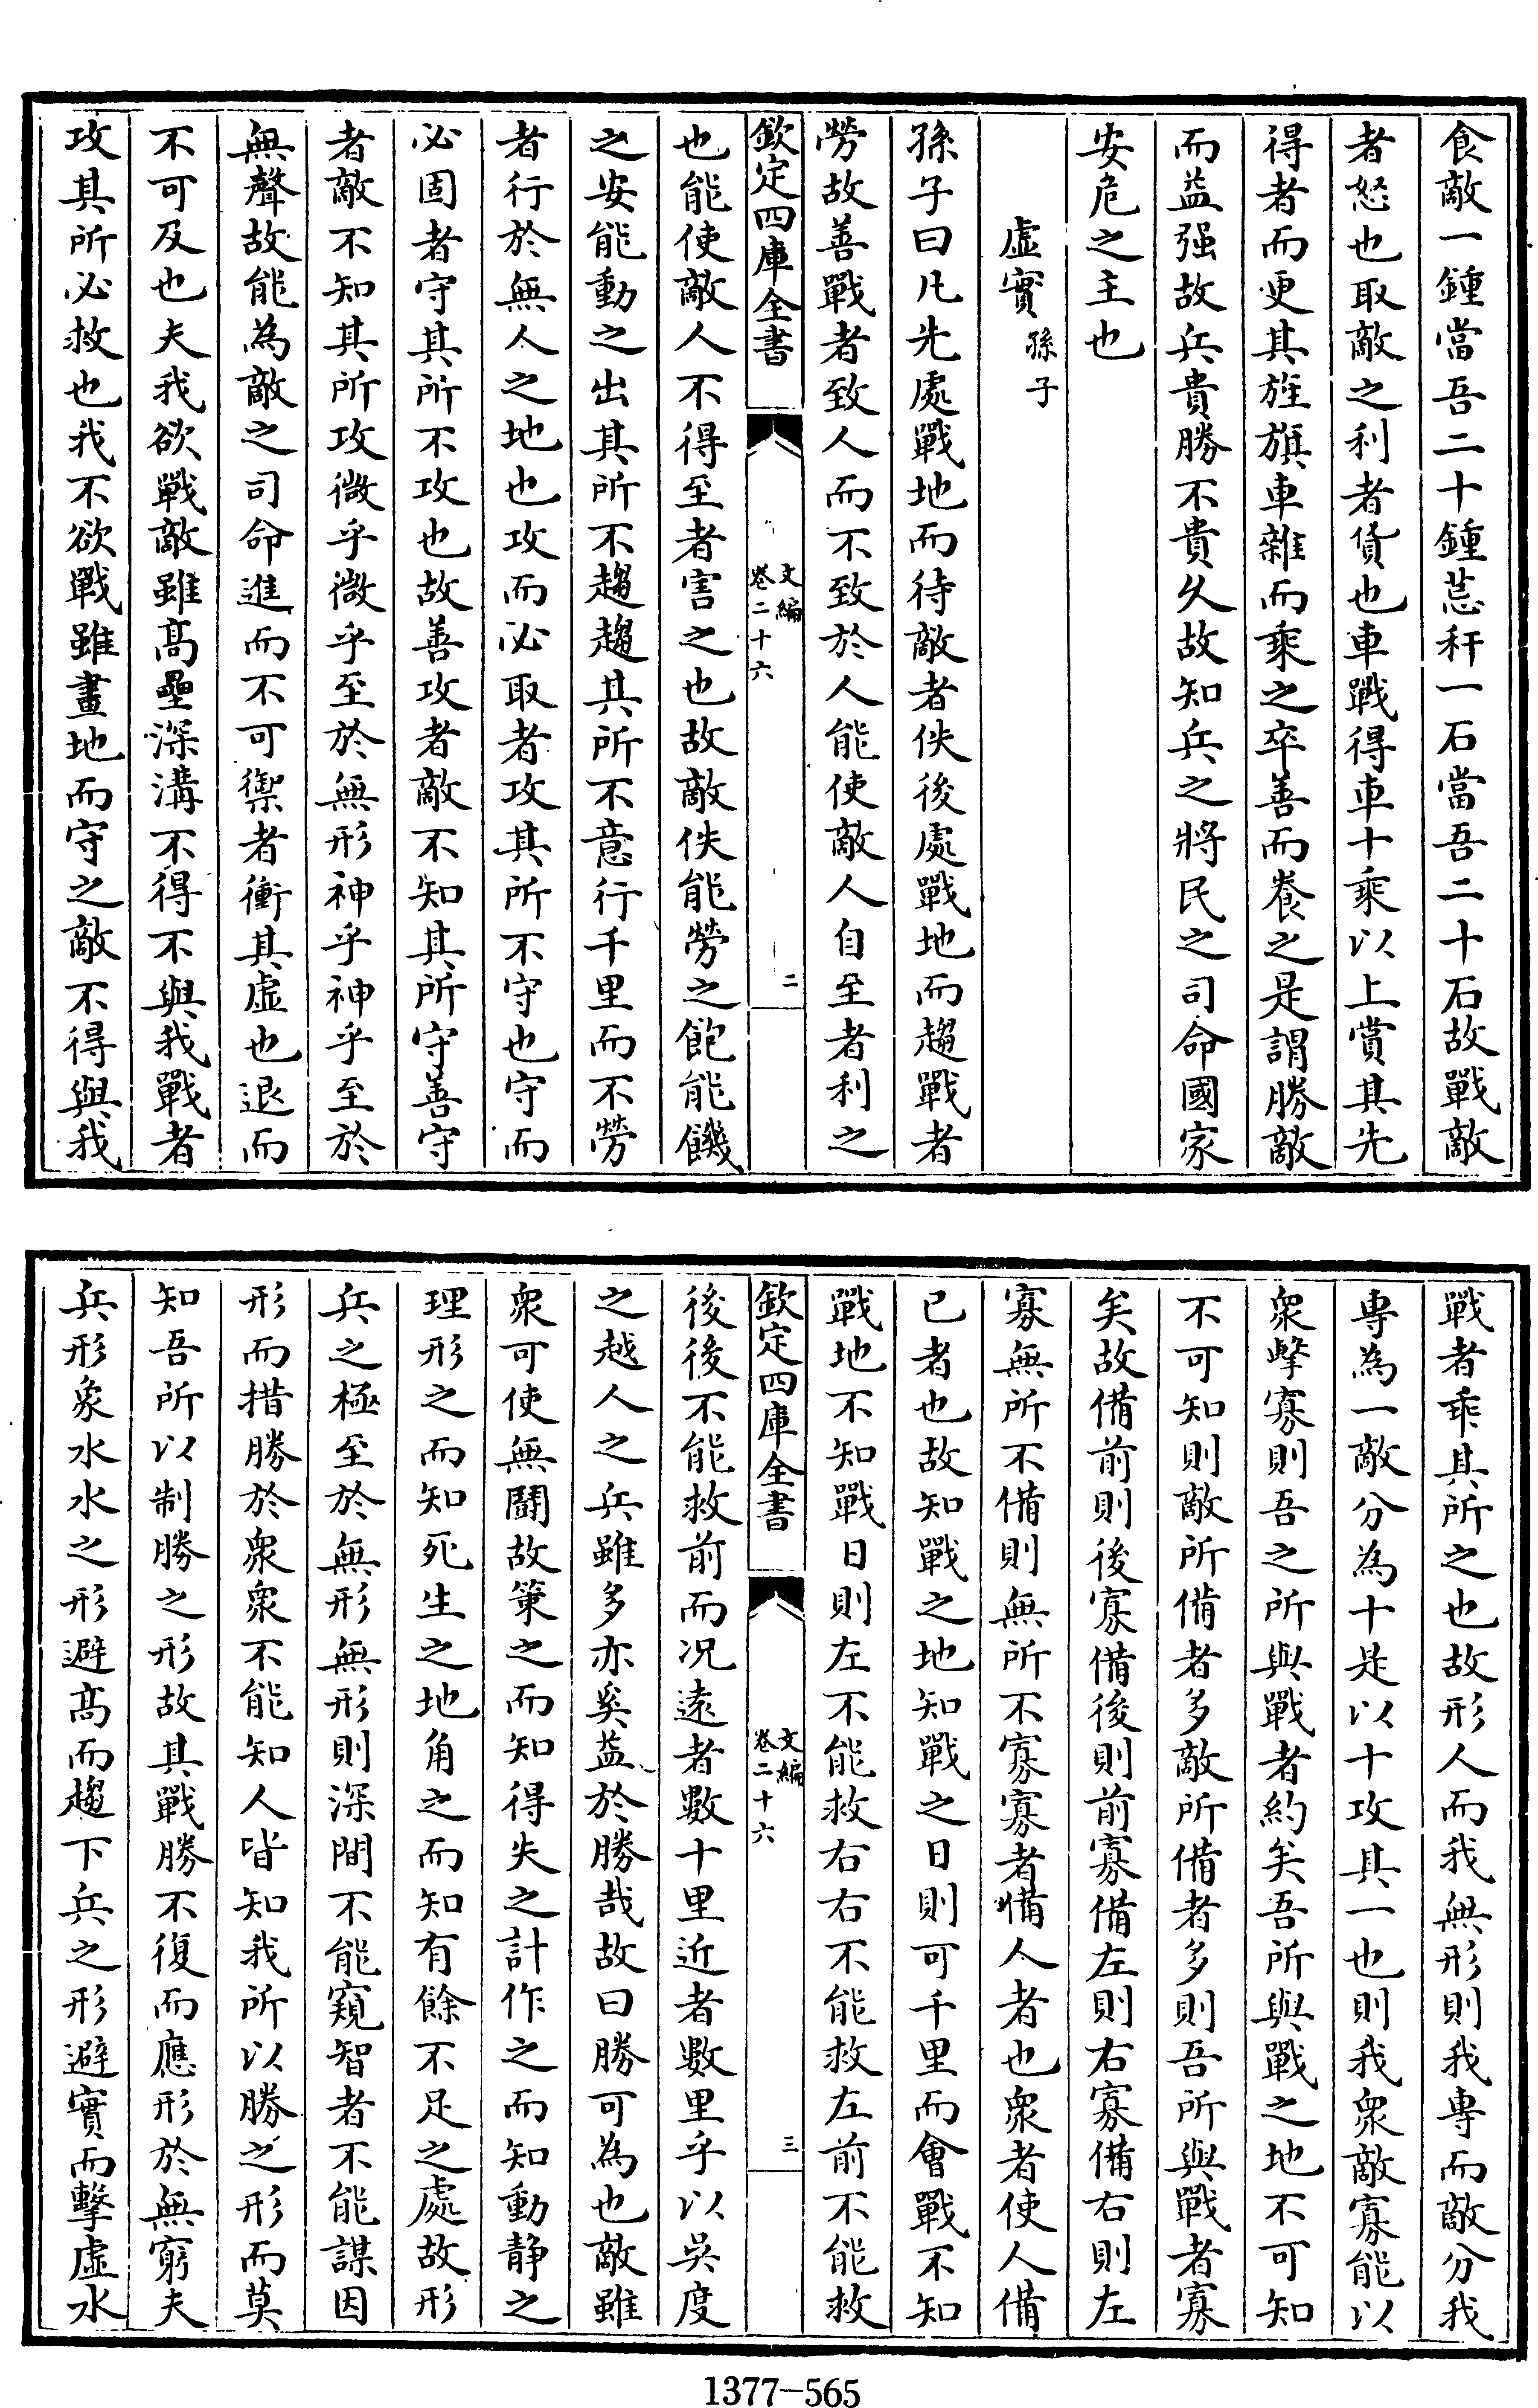 食敵一鍾當吾二十鍾𦮼秆一石當吾二十石故戰敵
者怒也取敵之利者貨也車戰得車十乘以上賞其先
得者而更其旌旗車雜而乘之卒善而養之是謂勝敵
而益强故兵貴勝不貴久故知兵之將民之司命國家
安危之主也
虛實孫子
孫子曰凡先處戰地而待敵者佚後處戰地而趨戰者
勞故善戰者致人而不致於人能使敵人自至者利之
欽定四庫全書
文編
卷二十六
二
也能使敵人不得至者害之也故敵佚能勞之飽能饑
之安能動之出其所不趨趨其所不意行千里而不勞
者行於無人之地也攻而必取者攻其所不守也守而
必固者守其所不攻也故善攻者敵不知其所守善守
者敵不知其所攻微乎微乎至於無形神乎神乎至於
無聲故能為敵之司命進而不可禦者衝其虛也退而
不可及也夫我欲戰敵雖高壘深溝不得不與我戰者
攻其所必救也我不欲戰雖畫地而守之敵不得與我
戰者乖其所之也故形人而我無形則我專而敵分我
專為一敵分為十是以十攻其一也則我衆敵寡能以
衆擊寡則吾之所與戰者約矣吾所與戰之地不可知
不可知則敵所備者多敵所備者多則吾所與戰者寡
矣故備前則後寡備後則前寡備左則右寡備右則左
寡無所不備則無所不寡寡者備人者也衆者使人備
已者也故知戰之地知戰之日則可千里而會戰不知
戰地不知戰日則左不能救右右不能救左前不能救
欽定四庫全書
文編
卷二十六
三
後後不能救前而况遠者數十里近者數里乎以吳度
之越人之兵雖多亦奚益於勝哉故曰勝可為也敵雖
衆可使無鬬故䇿之而知得失之計作之而知動静之
理形之而知死生之地角之而知有餘不足之處故形
兵之極至於無形無形則深間不能窺智者不能謀因
形而措勝於衆衆不能知人皆知我所以勝之形而莫
知吾所以制勝之形故其戰勝不復而應形於無窮夫
兵形象水水之形避高而趨下兵之形避實而擊虛水
1377-565